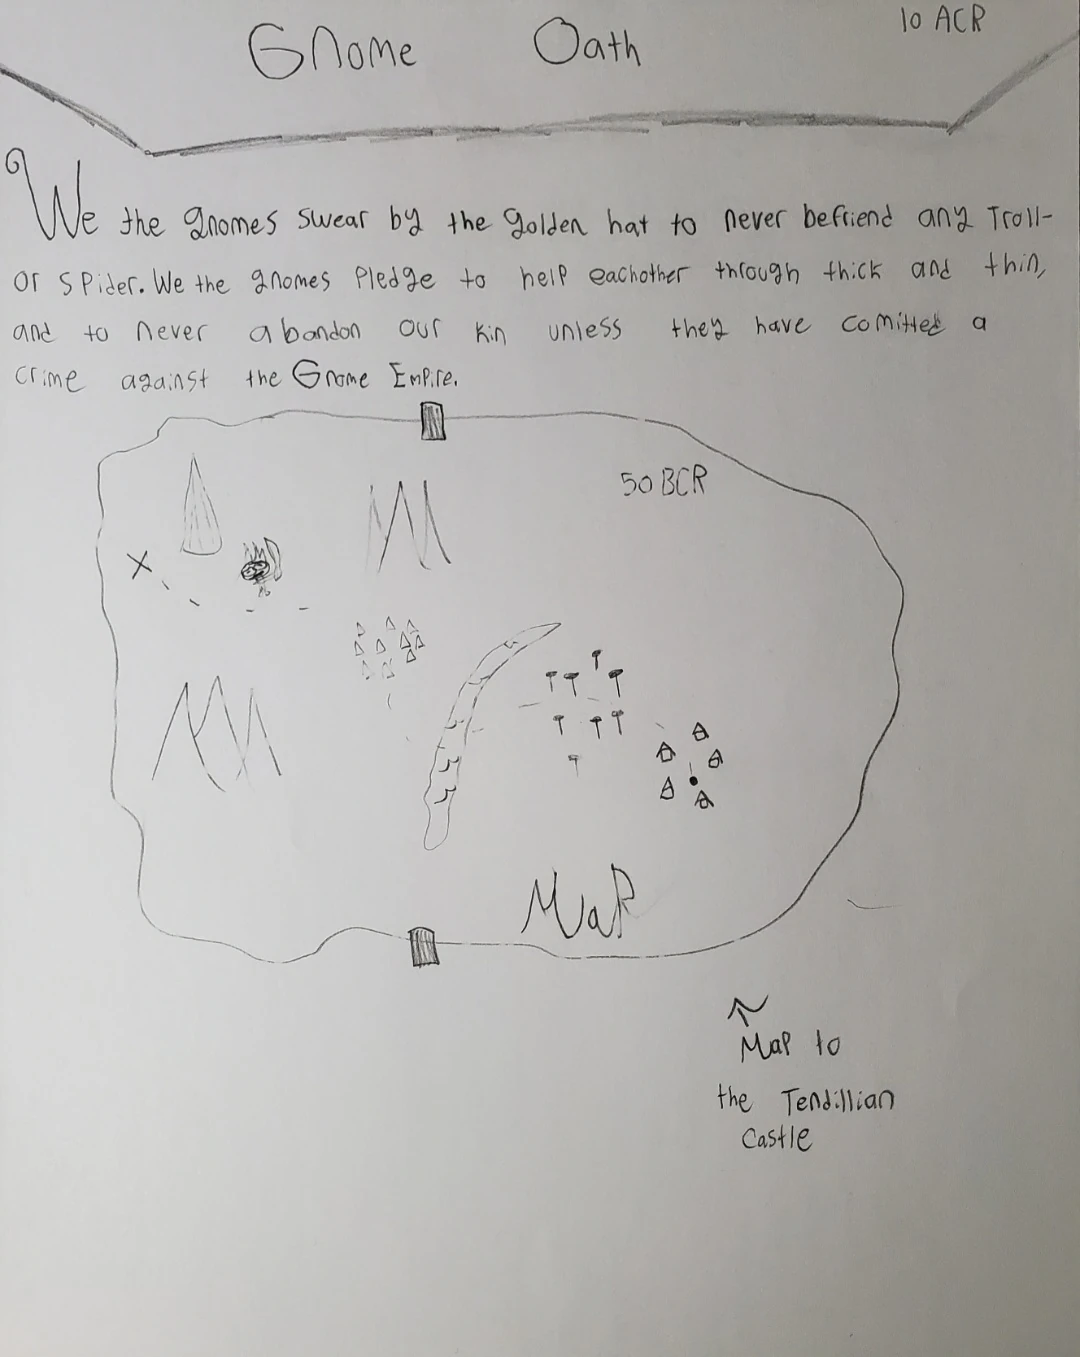 Gnome Oath
10 ACR
We the gnomes swear by the golden hat to never befriend any Troll-
or spider. We the gnomes Pledge to help eachother through thick and thin,
and to never abandon our kin unless they have comitted a
crime against the Gnome Empire.
50 BCR
X
Map
Map to
the Tendillian
Castle